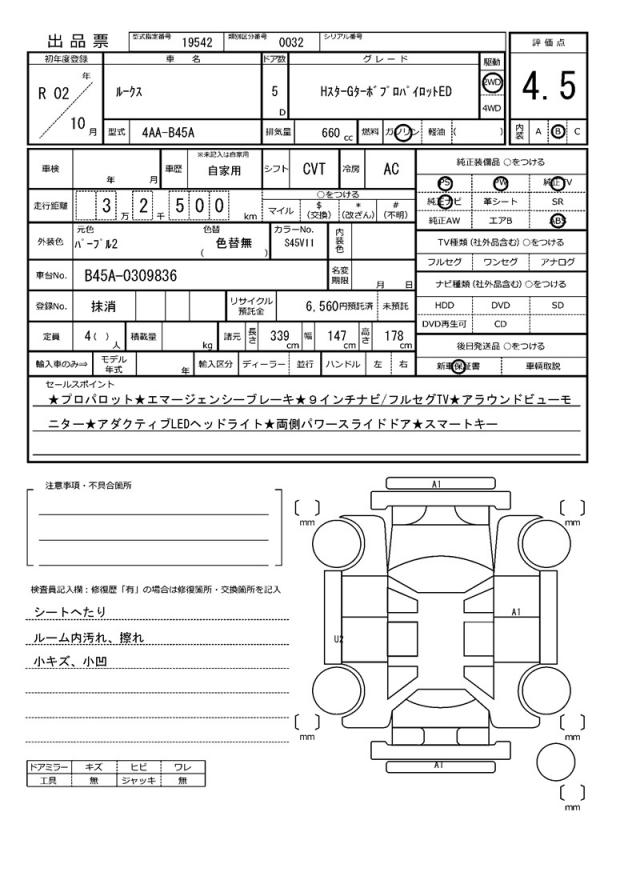 出品票 型式指定番号 19542 類別区分番号 0032 シリアル番号
初年度登録 車名 ドア数 グレード 駆動 評価点
R 02 年 10 月 ルークス 5 D HスターGターボプロパイロットED 2WD 4WD 4.5
型式 4AA-B45A 排気量 660 cc 燃料 ガソリン 軽油 ( ) 内装 A B C
車検 年 月 車歴 ※未記入は自家用 自家用 シフト CVT 冷房 AC 純正装備品 ○をつける
PS PW 純正TV
走行距離 3 万 2 千 5 0 0 km ○をつける マイル $ (交換) * (改ざん) # (不明) 純正ナビ 革シート SR
純正AW エアB ABS
外装色 元色 パープル2 色替 ( 色替無 ) カラーNo. S45VII 内装色 TV種類 (社外品含む) ○をつける
フルセグ ワンセグ アナログ
車台No. B45A-0309836 名変期限 月 日 ナビ種類 (社外品含む) ○をつける
登録No. 抹消 リサイクル預託金 6,560円預託済 未預託 HDD DVD SD
DVD再生可 CD
定員 4( ) 人 積載量 kg 諸元 長さ 339 cm 幅 147 cm 高さ 178 cm 後日発送品 ○をつける
輸入車のみ⇒ モデル年式 年 輸入区分 ディーラー 並行 ハンドル 左 右 新車保証書 車輌取説
セールスポイント
★プロパロット★エマージェンシーブレーキ★９インチナビ/フルセグTV★アラウンドビューモ
ニター★アダクティブLEDヘッドライト★両側パワースライドドア★スマートキー
注意事項・不具合箇所
検査員記入欄：修復歴「有」の場合は修復箇所・交換箇所を記入
シートへたり
ルーム内汚れ、擦れ
小キズ、小凹
ドアミラー キズ ヒビ ワレ
工具 無 ジャッキ 無
A1
mm mm
A1
U2
mm mm
A1
mm